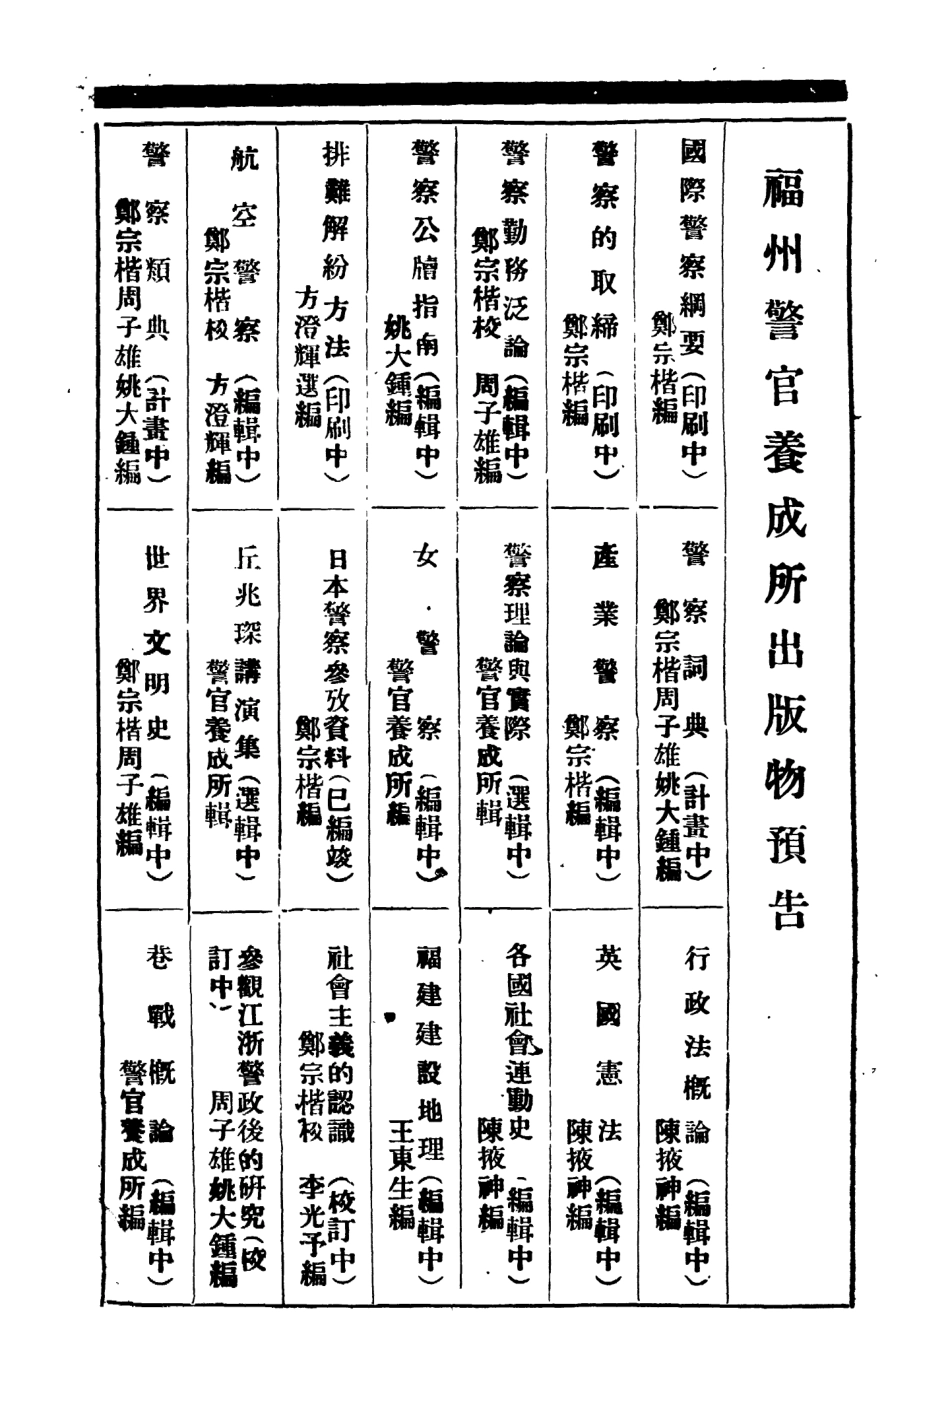 福州警官養成所出版物預告
國際警察綱要（印刷中）
鄭宗楷編
警察詞典（計畫中）
鄭宗楷周子雄姚大鍾編
行政法概論（編輯中）
陳掖神編
警察的取締（印刷中）
鄭宗楷編
產業警察（編輯中）
鄭宗楷編
英國憲法（編輯中）
陳掖神編
警察勤務泛論（編輯中）
鄭宗楷校 周子雄編
警察理論與實際（選輯中）
警官養成所輯
各國社會運動史（編輯中）
陳掖神編
警察公牘指南（編輯中）
姚大鍾編
女警察（編輯中）
警官養成所編
福建建設地理（編輯中）
王東生編
排難解紛方法（印刷中）
方澄輝選編
日本警察參攷資料（已編竣）
鄭宗楷編
社會主義的認識（校訂中）
鄭宗楷校 李光予編
航空警察（編輯中）
鄭宗楷校 方澄輝編
丘兆琛講演集（選輯中）
警官養成所輯
參觀江浙警政後的研究（校
訂中） 周子雄姚大鍾編
警察類典（計畫中）
鄭宗楷周子雄姚大鍾編
世界文明史（編輯中）
鄭宗楷周子雄編
巷戰概論（編輯中）
警官養成所編